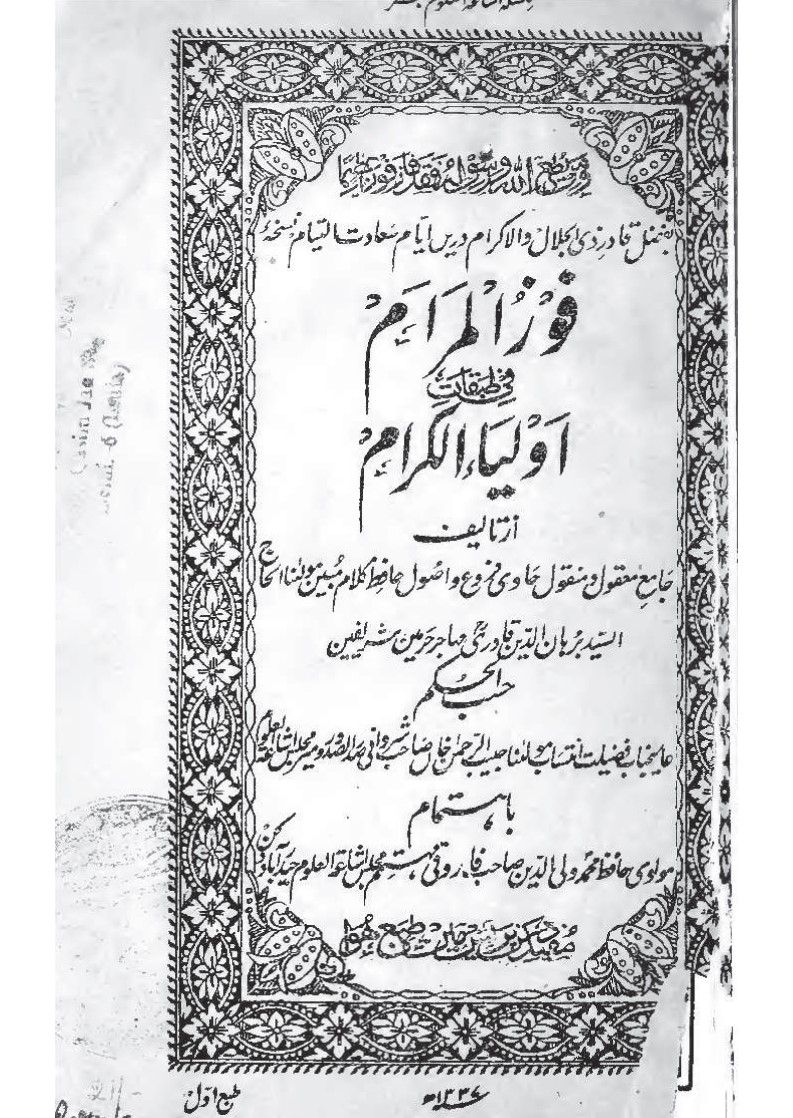 سلسلہ اشاعۃ العلوم نمبر
ومن يطع الله ورسوله فقد فاز فوزا عظيما
بفضل قادر ذی الجلال والاکرام دریں ایّام سَعادت التیام نسخۂ
فَوْزُ الْمَرَامْ
فی طبقات
اَوْلیَاء الکِرامْ
از تالیف
جَامع معقول و منقول حَاوی فروع و اصُول حَافظِ کلام مُبین مولٰنا الحاج
السّید بُرہان الدّین قادریؒ مہاجر حرمین شریفین
حسب الحکم
عالیجناب فضیلت انتساب مولٰنا حبیب الرّحمٰن خاں صاحب شروانی صدر الصدور و میر مجلس اشاعۃ العلوم
باہتمام
مولوی حافظ محمد ولی الدّین صاحب فاروقی مہتمم مجلس اشاعۃ العلوم حیدرآباد دکن
مفید دکن پریس میں طبع ہوا
طبع اوّل
۱۳۳۷ھ